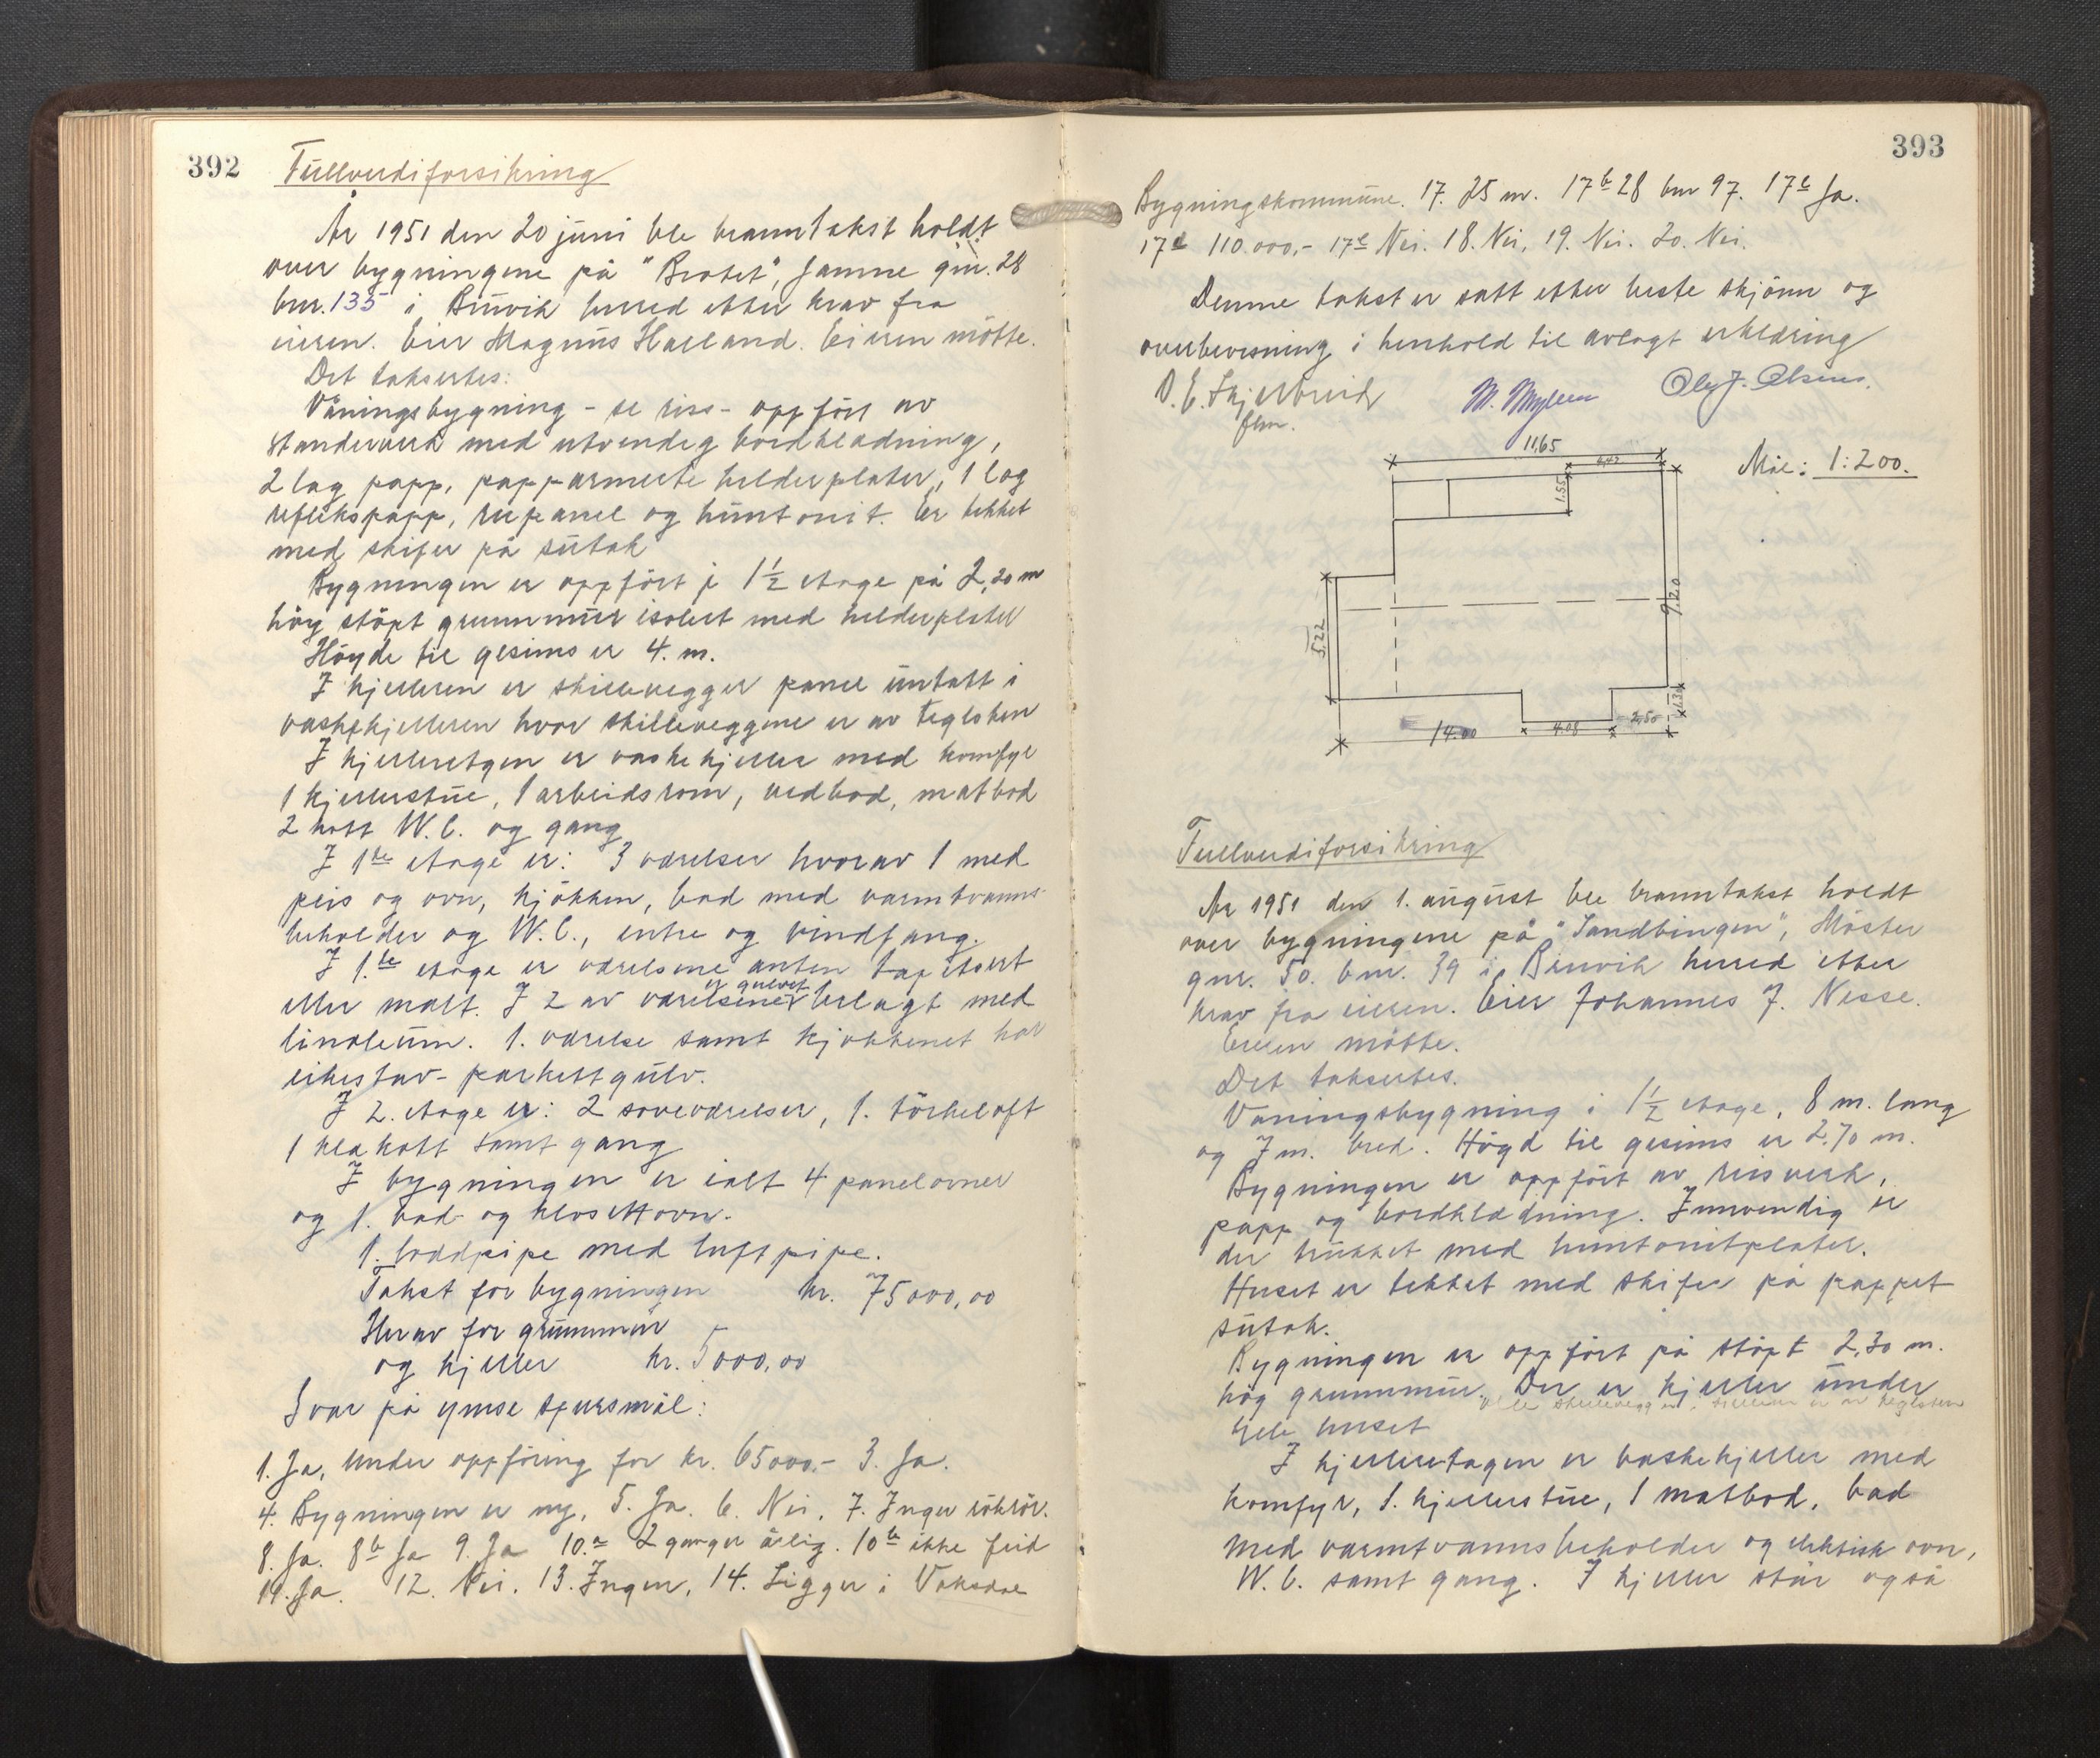 392
Fullverdiforsikring
År 1951 den 20 juni ble branntakst holdt
over bygningene på "Brotet", Jamne gnr. 28
bnr. 135 i Bruvik herred etter krav fra
eieren. Eier Magnus Hasland. Eieren møtte.
Det taksertes:
Våningsbygning - se riss - oppfört av
standerverk med utvendig bordkledning,
2 lag papp, papparmerte helderplater, 1 lag
reflekspapp, rupanel og huntonit. Er tekket
med skifer på sutak
Bygningen er oppfört i 1½ etage på 2,20 m
höy stöpt grunnmur isolert med helderplater
Höyde til gesims er 4. m.
I kjelleren er skillevegger panel untatt i
vaskekjelleren hvor skilleveggene er av teglsten
I kjelleretgen er vaskekjeller med komfyr
1 kjellerstue, 1 arbeidsrom, vedbod, matbod
2 kott W.C. og gang
I 1ste etage er: 3 værelser hvorav 1 med
peis og ovn, kjökken, bad med varmtvanns-
beholder og W.C., entre og vindfang.
I 1.ste etage er værelsene anten tapetsert
eller malt. I 2 av værelsene er gulvet belagt med
linoleum. 1. værelse samt kjøkkenet har
eikestav-parkettgulv.
I 2. etage er: 2 soveværelser, 1. törkeloft
1 klekott samt gang
I bygningen er ialt 4 panelovner
og 1. bad- og klosettovn.
1. loddpipe med luftpipe.
Takst for bygningen kr. 75000,00
Herav for grunnmur
og kjeller kr. 5000,00
Svar på ymse spursmål:
1. Ja, under oppföring for kr. 65000.- 3. Ja.
4. Bygningen er ny, 5. Ja. 6. Nei. 7. Ingen rökrör.
8. Ja. 8b Ja 9. Ja 10.a 2 ganger årlig. 10b ikke feid
11. Ja. 12. Nei. 13. Ingen, 14. Ligger i Vaksdal
393
Bygningskommune. 17. 25 m. 17b 28 bnr 97. 17c Ja.
17d 110.000,- 17e Nei. 18. Nei, 19. Nei. 20. Nei.
Denne takst er satt etter beste skjönn og
overbevisning i henhold til avlagt erklæring
O. E. Skjerbreid M. Myhren Olaf J. Olsen.
fhm.
Mål: 1:200.
11,65
4,42
1.55
9,20
5,22
1,30
14.00
4.08
2,50
Fullverdiforsikring
År 1951 den 1. august ble branntakst holdt
over bygningene på "Sandbingen", Mäster
gnr. 50. bnr. 39 i Bruvik herred etter
krav fra eieren. Eier Johannes J. Nesse.
Eieren møtte.
Det taksertes.
Våningsbygning i 1½ etage, 8 m. lang
og 7 m. bred. Högd til gesims er 2.70 m.
Bygningen er oppfört av reisverk,
papp og bordkledning. Innvendig er
der trukket med huntonitplater.
Huset er tekket med skifer på pappet
sutak.
Bygningen er oppfört på stöpt 2,30 m.
hög grunnmur. Der er kjeller under
hele huset Alle skillevegger i kjelleren er av teglsten
I kjelleretagen er vaskekjeller med
komfyr, 1. kjellerstue, 1 matbod, bad
med varmtvannsbeholder og elektrisk ovn,
W.C. samt gang. I kjeller står også